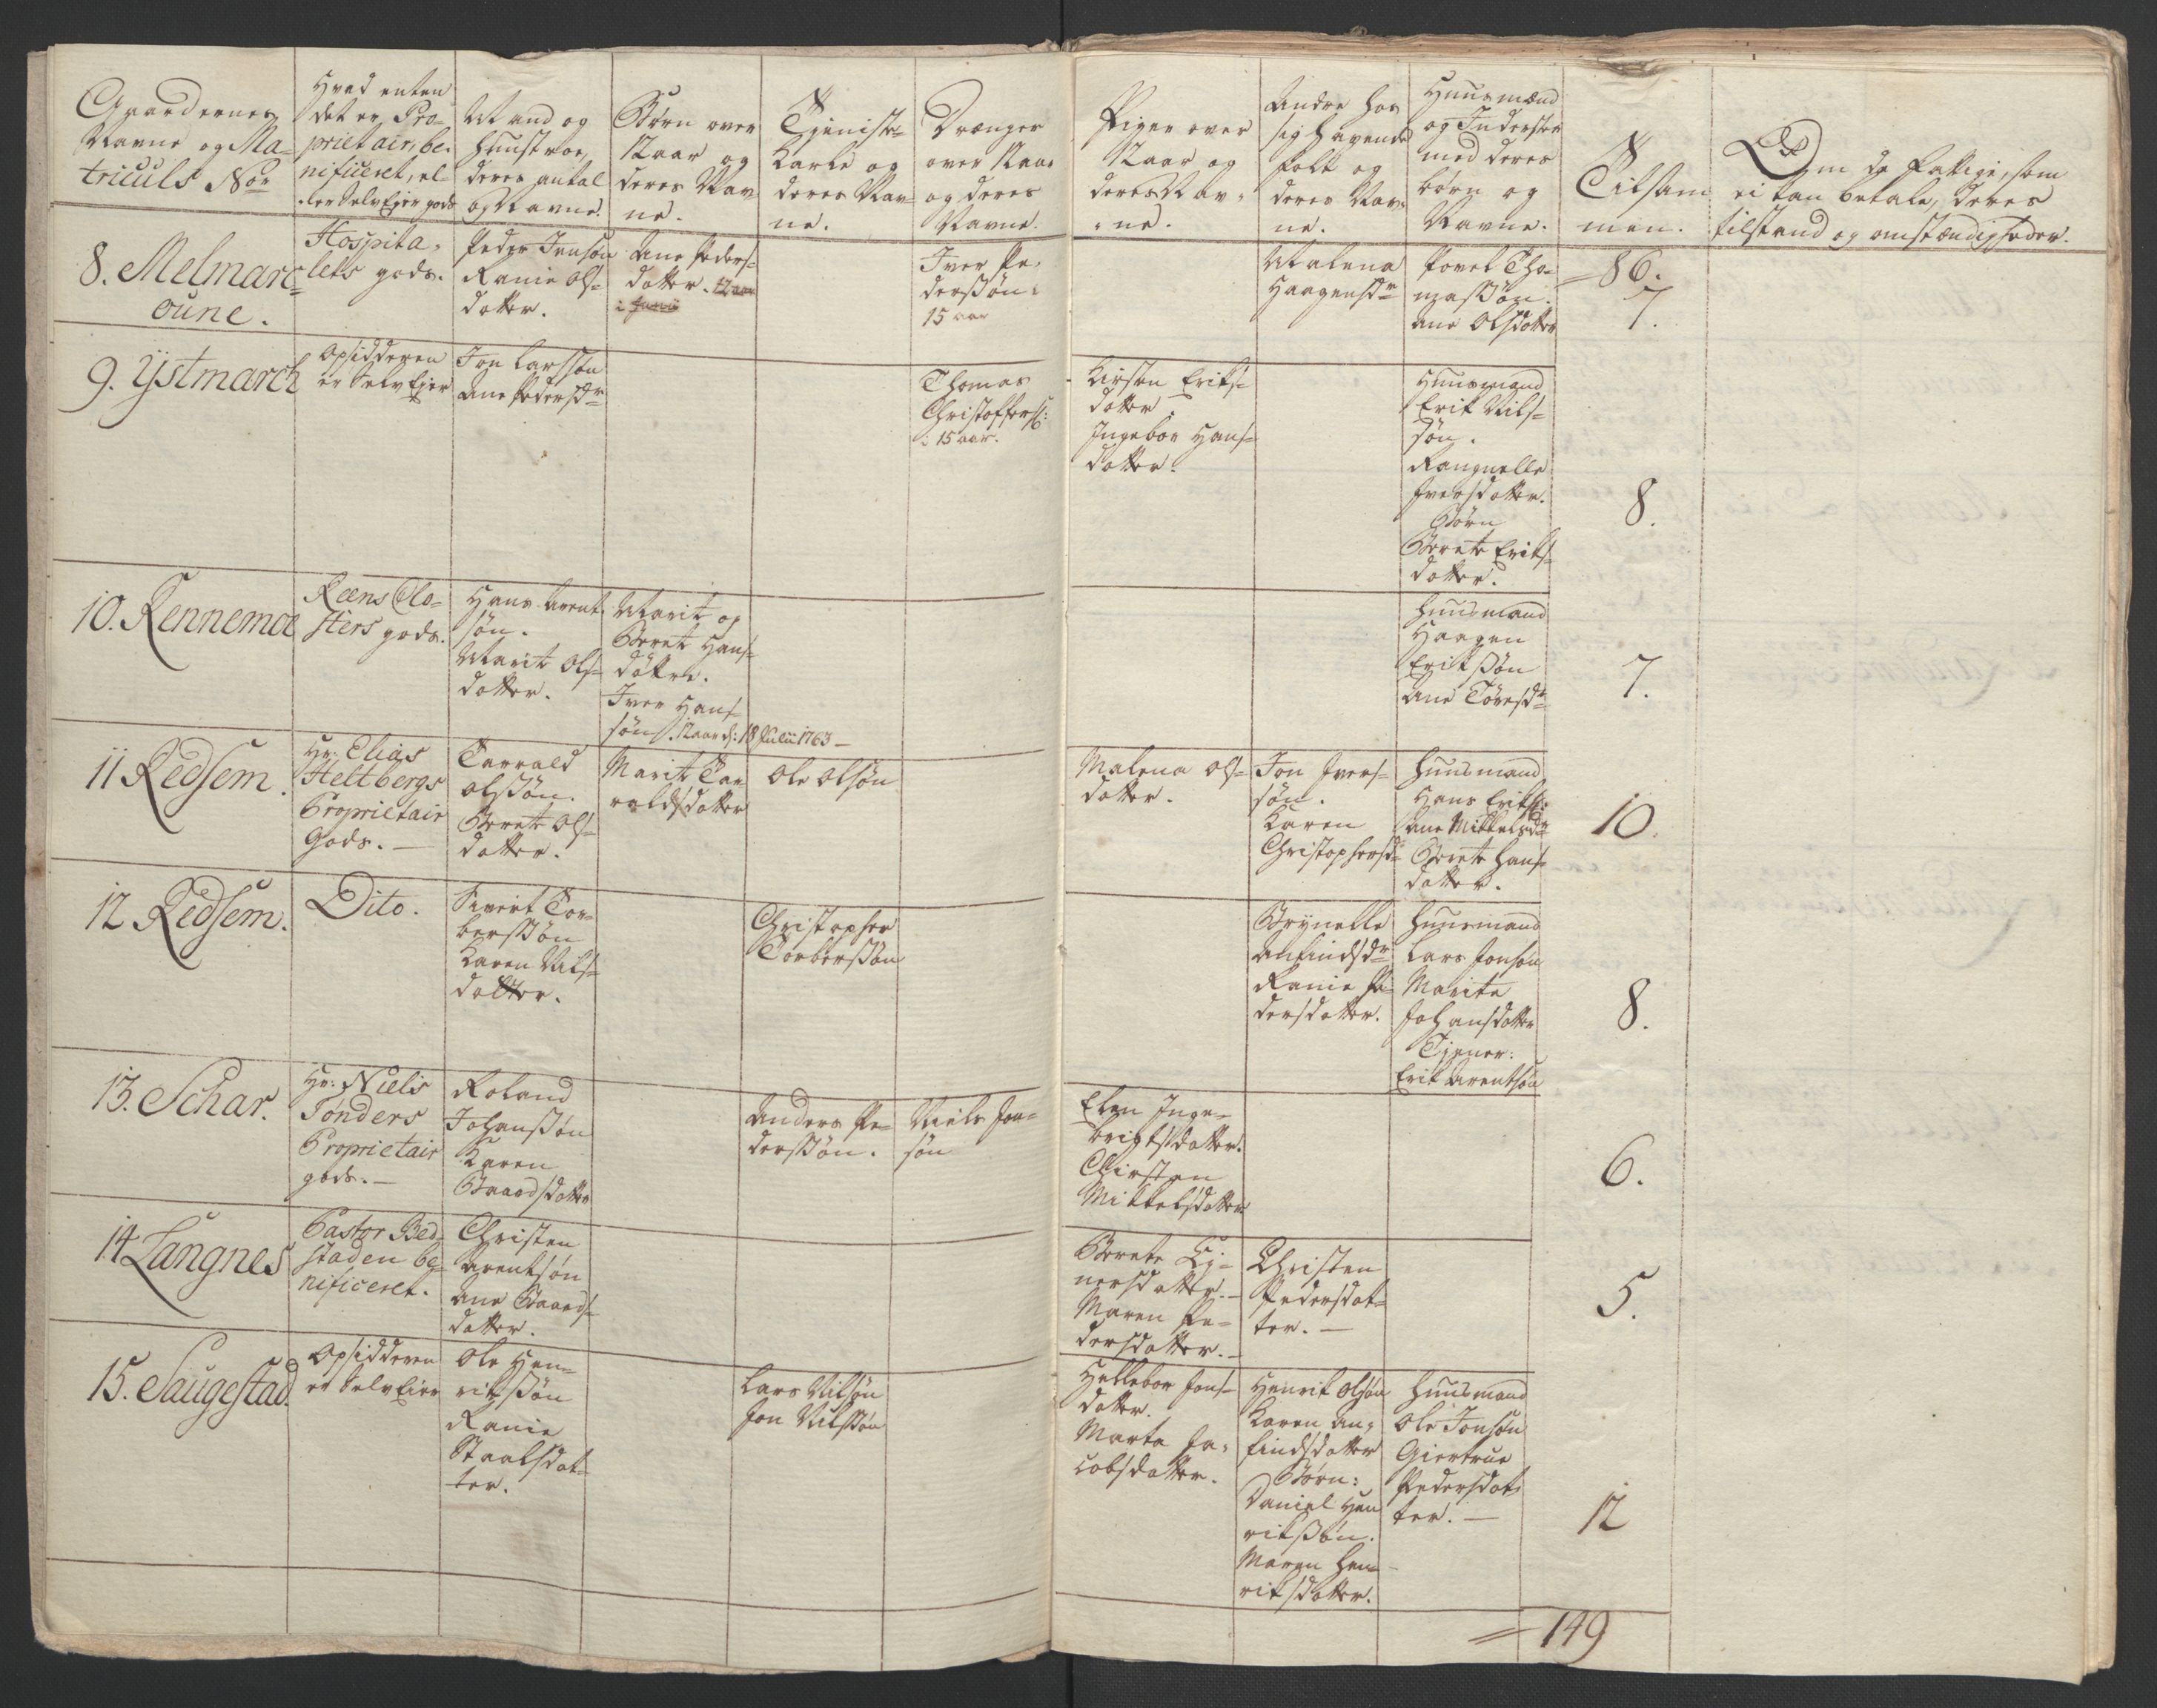 Gaardernes
Navne og Ma-
triculs Nor
Hvad enten
det er Pro-
prietair, be-
nificeret, el-
ler SelvEjer gods
Mand og
Hustroe,
deres antal
og Navne.
Børn over
12 aar og
deres Nav
ne.
Tjeniste-
Karle og
deres Nav-
ne.
Drænger
over 12 aar
og deres
Navne.
Piger over
12 aar og
deres Nav-
ne.
Andre hos
sig havende
folk og
deres Nav-
ne.
Huusmænd
og Inderster
med deres
børn og
Navne.
Tilsam
men.
Om de fattige, som
ei kan betale, deres
tilstand og omstændigheder.
8. Melmarc-
oune.
Hospita-
lets gods.
Peder Jensøn
Ranie Ols-
datter.
Ane Peders-
datter. 12 aar
i Junii
Iver Pe-
derssøn
15 aar
Malena
Haagensdr
Povel Tho-
massøn.
Ane Olsdatter
86.
7.
9. Ystmarch
Opsidderen
er SelvEjer
Jon Larssøn
Ane Pedersdr
Thomas
Christoffers:
: 15 aar.
Kirsten Eriks-
datter
Ingebor Hans-
datter.
Huusmand
Erik Nils-
søn.
Rangnelle
Iversdatter.
Børn
Berete Eriks-
datter.
8.
10. Rennemoe
Reens Clo-
sters gods.
Hans Arent
søn.
Marit Ols-
datter.
Marit og
Beret Hans-
døttre.
Iver Hans-
søn. 12 aar d: 18 Julii 1763
Huusmand
Haagen
Erikssøn
Ane Toresdr
7.
11 Redsem.
Hr: Elias
Heltbergs
Proprietair
Gods.
Tarrald
Olssøn.
Berete Ols-
datter.
Marit Tar
raldsdatter
Ole Olsøn
Malena Ols-
datter.
Jon Ivers-
søn.
Karen
Christophersdr
Huusmand
Hans Eriks:
Ane Mikkelsdr
Berete Hans-
datter.
10.
12 Redsem.
Dito.
Sivert Tor-
berssøn
Karen Nils-
datter.
Christopher
Torberssøn
Brynelle
Anfindsdr
Ranie Pe-
dersdatter.
Huusmand
Lars Jonsøn
Marite
Johansdatter
Tjener:
Erik Arentsøn
8.
13. Schar.
Hr: Niels
Tønders
Proprietair
gods.
Roland
Johanssøn
Karen
Baardsdatter
Anders Pe-
derssøn.
Niels Jon-
søn
Elen Inge-
brigtsdatter.
Chirsten
Mikkelsdatter
6.
14 Langnes
Pastor Bed-
staden be-
nificeret.
Christen
Arentsøn
Ane Baards-
datter.
Berete Ej-
nersdatter.
Maren Pe-
dersdatter.
Christen
Pedersdat-
ter.
5.
15. Saugestad.
Opsidderen
er SelvEier
Ole Hen-
rikssøn
Ranie
Staalsdat-
ter.
Lars Nilsøn
Jon Nilssøn
Hellebor Jons-
datter.
Marta Ja-
cobsdatter.
Henrik Olsøn
Karen An-
findsdatter
Børn:
Daniel Hen
rikssøn.
Maren Hen-
riksdatter.
Huusmand
Ole Jonsøn
Giertrue
Pedersdat-
ter.
12
149